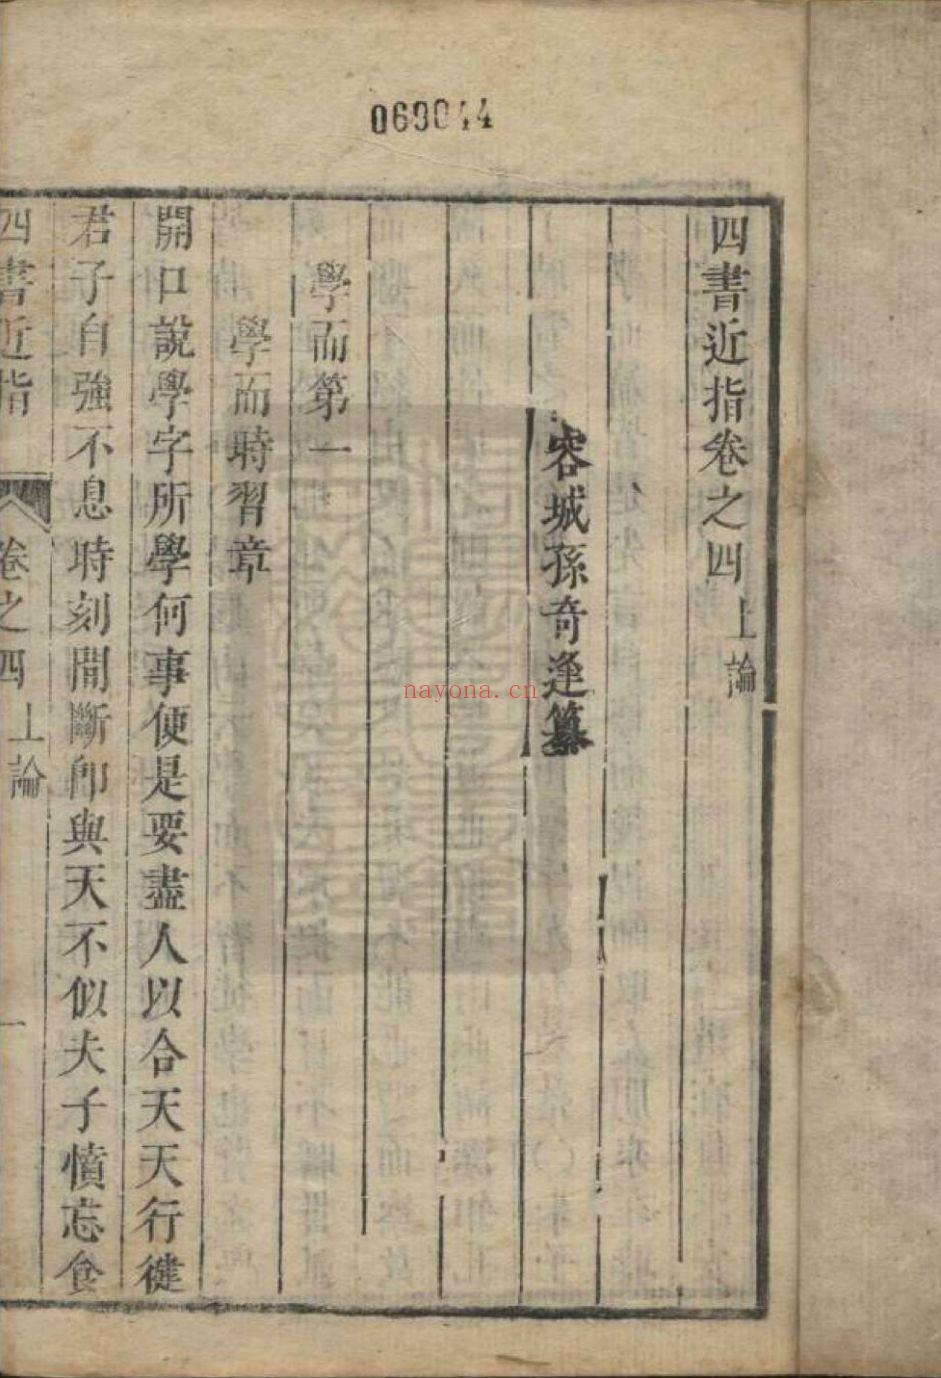 069044
四書近指卷之四 上論
容城孫奇逢纂
學而第一
學而時習章
開口說學字所學何事便是要盡人以合天天行健
君子自強不息時刻間斷卽與天不似夫子憤忘食
四書近指 卷之四 上論 一
nayona.cn